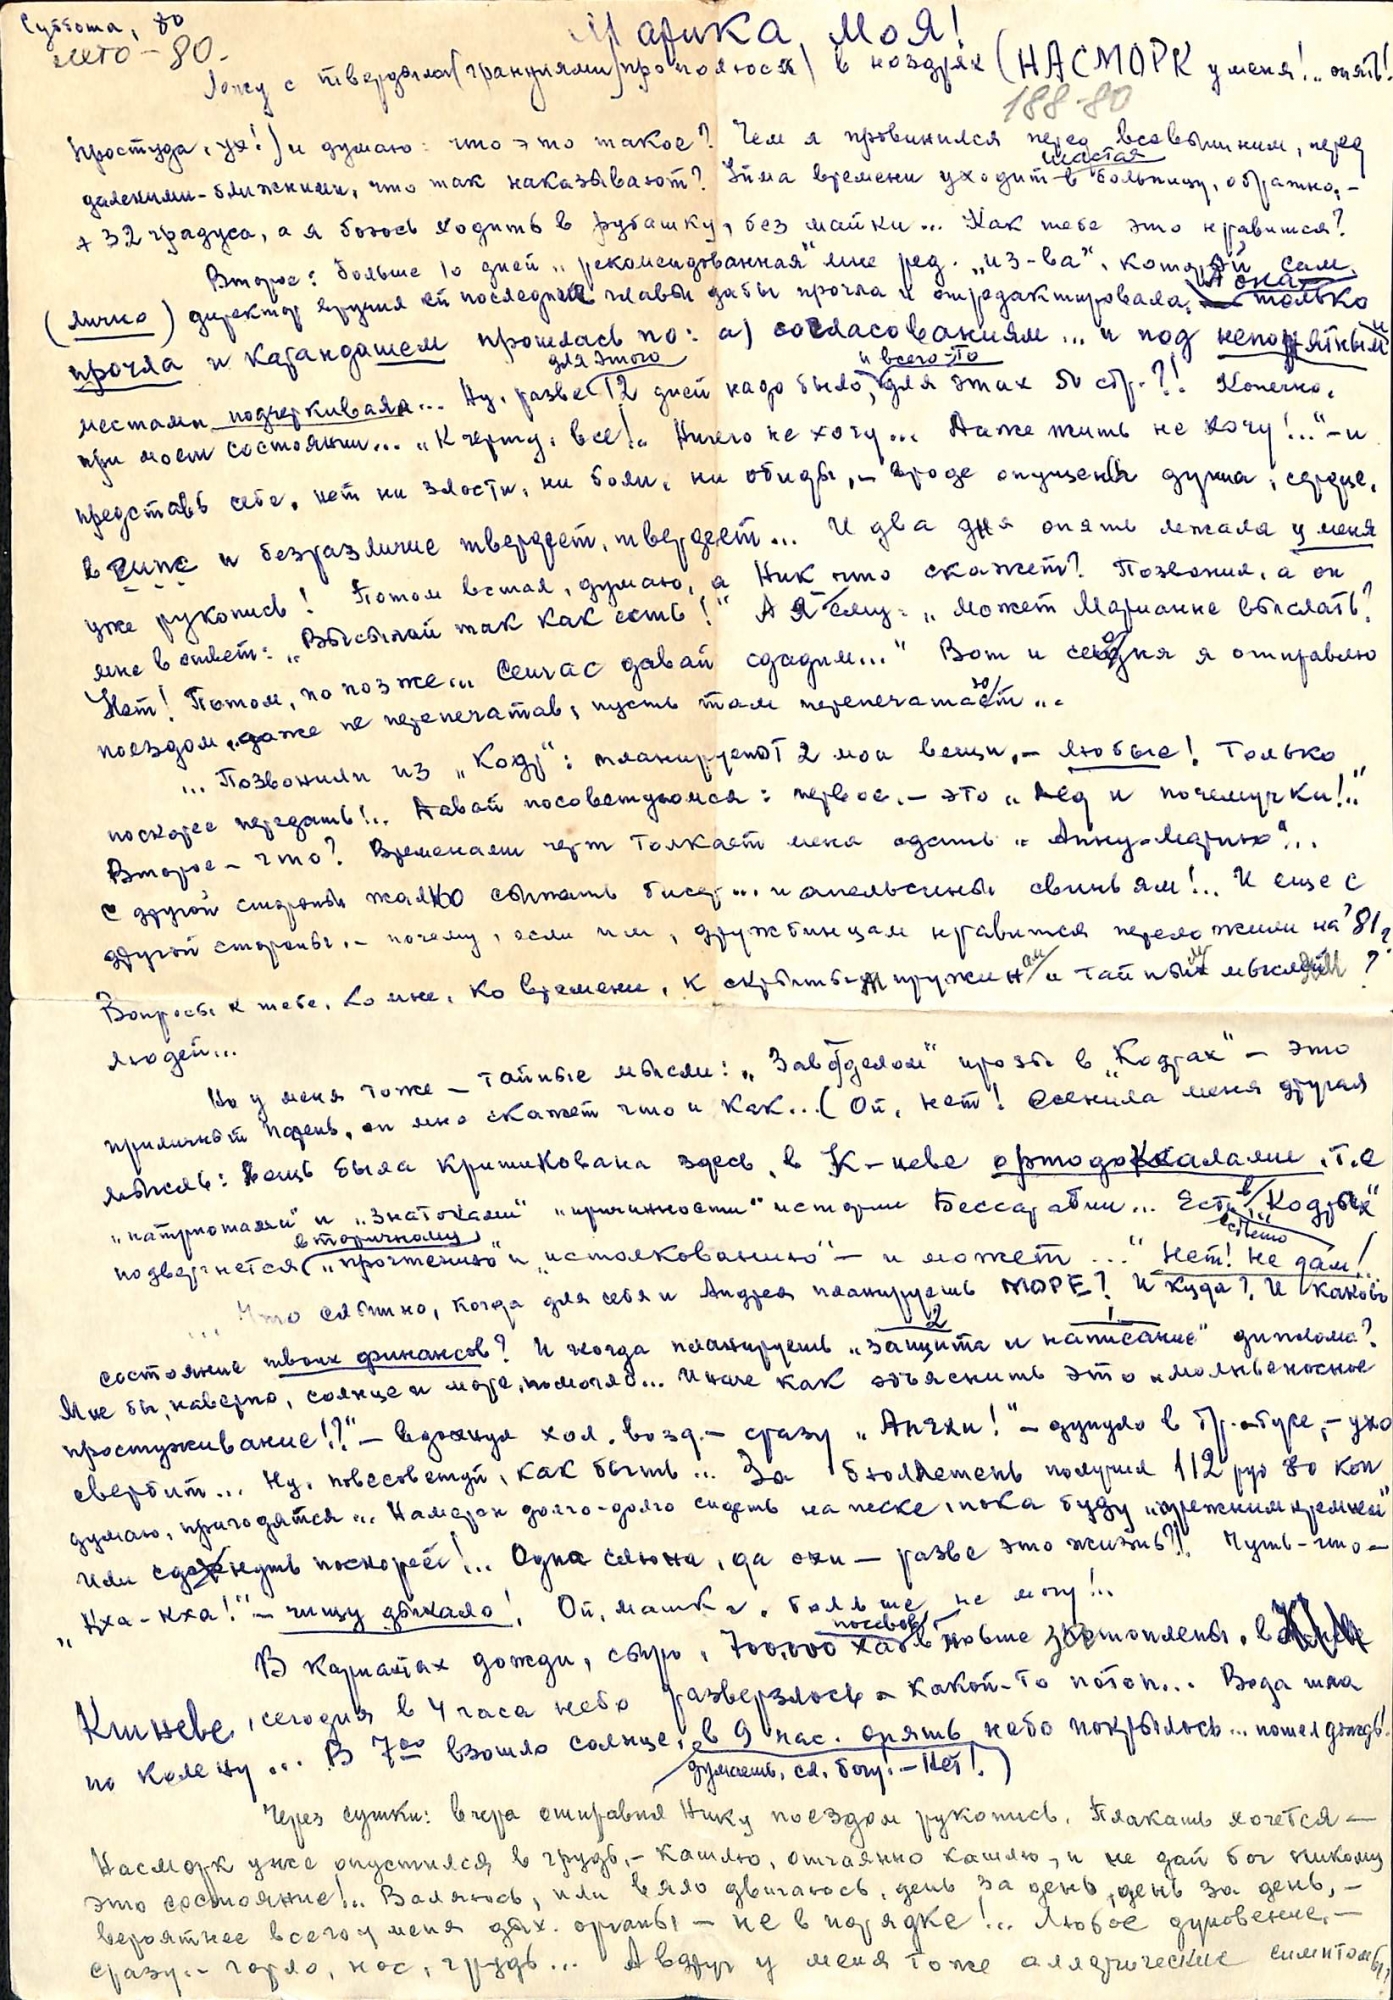 Суббота, 80
лето - 80.
Марика моя!
Лежу с твердыми (гранулами) прополюса) в ноздрях (НАСМОРК у меня!.. опять!
188-80
Простуда, ух!) и думаю: что это такое? Чем я провинился перед всевышним, перед
далекими-ближними, что так наказывают? Уйма времени уходит в больницу, обратно, -
+ 32 градуса, а я боюсь ходить в рубашку, без майки... Как тебе это нравится?
Второе: больше 10 дней „рекомендованная" мне ред. „из-ва", которой сам
(лично) директор вручил ей последние главы дабы прочла и отредактировала, а она только
прочла и карандашем прошлась по: а) согласованиям... и под непонятным
местами подчеркивала... Ну, разве для этого 12 дней надо было, и всего-то для этах 50 стр.?! Конечно,
при моем состоянии... „К черту, все!.. Ничего не хочу... Даже жить не хочу!.." - и
представь себе, нет ни злости, ни боли, ни обиды, - вроде опущены душа, сердце,
в гипс и безразличие твердеет, твердеет... И два дня опять лежала у меня
уже рукопись! Потом встал, думаю, а Ник что скажет? Позвонил, а он
мне в ответ: „Высылай так как есть!" А я ему: „Может Марианне выслать?
Нет! Потом, по позже... Сейчас давай сдадим..." Вот и сегодня я отправлю
поездом, даже не перепечатав, пусть там перепечатают...
... Позвонили из „Кодр": планируют 2 мои вещи, - любые! Только
поскорее передать!.. Давай посоветуемся: первое, - это „Дед и почемучки!.."
Второе - что? Временами черт толкает меня отдать „Анну-Марию"...
С другой стороны жалко сыпать бисер... и апельсины свиньям!.. И еще с
другой стороны, - почему, если им, дружбинцам нравится переложили на 81?
Вопросы к тебе, ко мне, ко времени, к скрытым пружинам и тайным мыслям ?
людей...
Но у меня тоже - тайные мысли: „Завотделом" прозы в „Кодрах" - это
приличный парень, он мне скажет что и как... (Ой, нет! Осенила меня другая
мысль: Вещь была критикована здесь, в К-неве ортодоксалами, т.е
„патриотами" и „знатоками" „причинности" истории Бессарабии... Если в „Кодрах"
подвергнется вторичному „прочтению" и „истолкованию" - и может ..." Нет! Не дам!
... Что слышно, когда для себя и Андрея планируешь МОРЕ? И куда? И каково
состояние твоих финансов? И когда планируешь „защита 2 и написание 1" диплома?
Мне бы, наверно, солнце и море помогло... Иначе как объяснить это „молньеносное
простуживание!?" - вдохнул хол. возд. - сразу „Апчхи!" - дунуло в - ухо
свербит... Ну, посоветуй, как быть... За бюллетень получил 112 руб 80 коп
думаю, пригодятся... Намерен долго-долго сидеть на песке, пока буду „прежним Еремеем"
или сдохнуть поскорее!... Одна слюна, да охи - разве это жизнь?! Чуть-что -
„Кха-кха!" - чищу дыхало! Ой, машка, больше не могу!..
В Карпатах дожди, сыро, 700.000 посевов затоплены, в
Кишневе, сегодня в 4 часа небо разверзлось - какой-то потоп... Вода шла
по колену... В 7⁰⁰ взошло солнце, в 9 час. опять небо покрылось... пошел дождь!
думаешь, сл. богу. - Нет!)
Через сутки: вчера отправил Нику поездом рукопись. Плакать хочется -
Насморк уже опустился в грудь, - кашлю, отчаянно кашлю, и не дай бог никому
это состояние!.. Валяюсь, или вяло двигаюсь, день за день, день за день, -
вероятнее всего у меня дых. органы - не в порядке!... Любое дуновение, -
сразу - горло, нос, грудь... А вдруг у меня тоже аллергические симптомы,